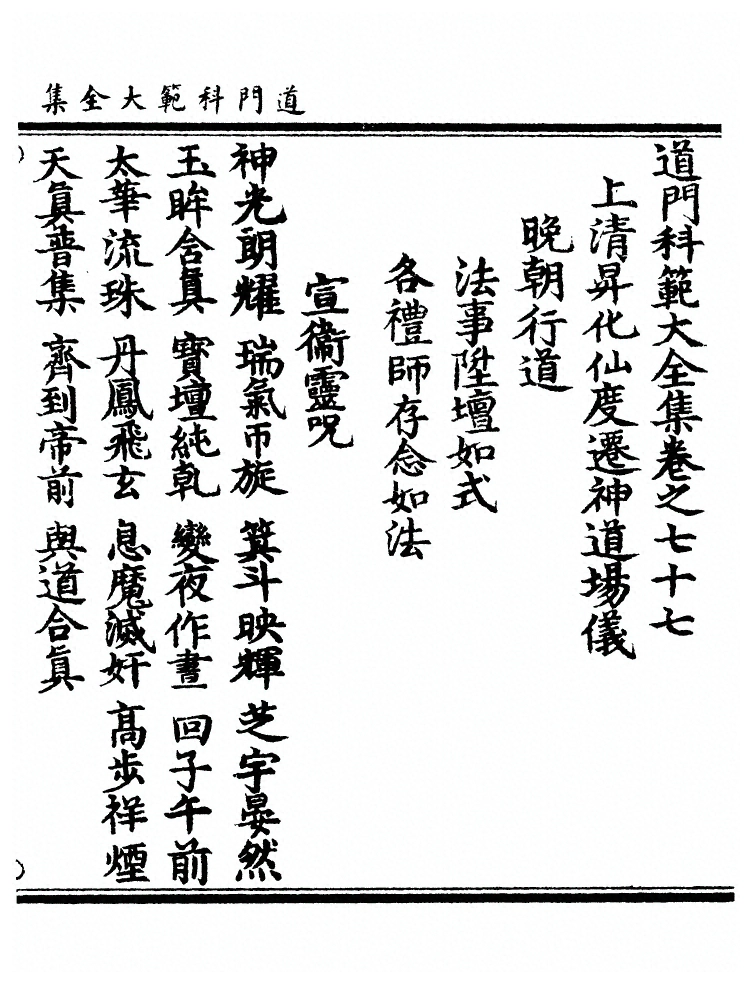 道門科範大全集
道門科範大全集卷之七十七
上清昇化仙度遷神道場儀
晚朝行道
法事陞壇如式
各禮師存念如法
宣衞靈呪
神光朗耀 瑞氣帀旋 箕斗映輝 芝宇晏然
玉眸含眞 寶壇純乹 變夜作晝 回子午前
太華流珠 丹鳳飛玄 息魔滅奸 高步祥煙
天眞普集 齊到帝前 與道合眞